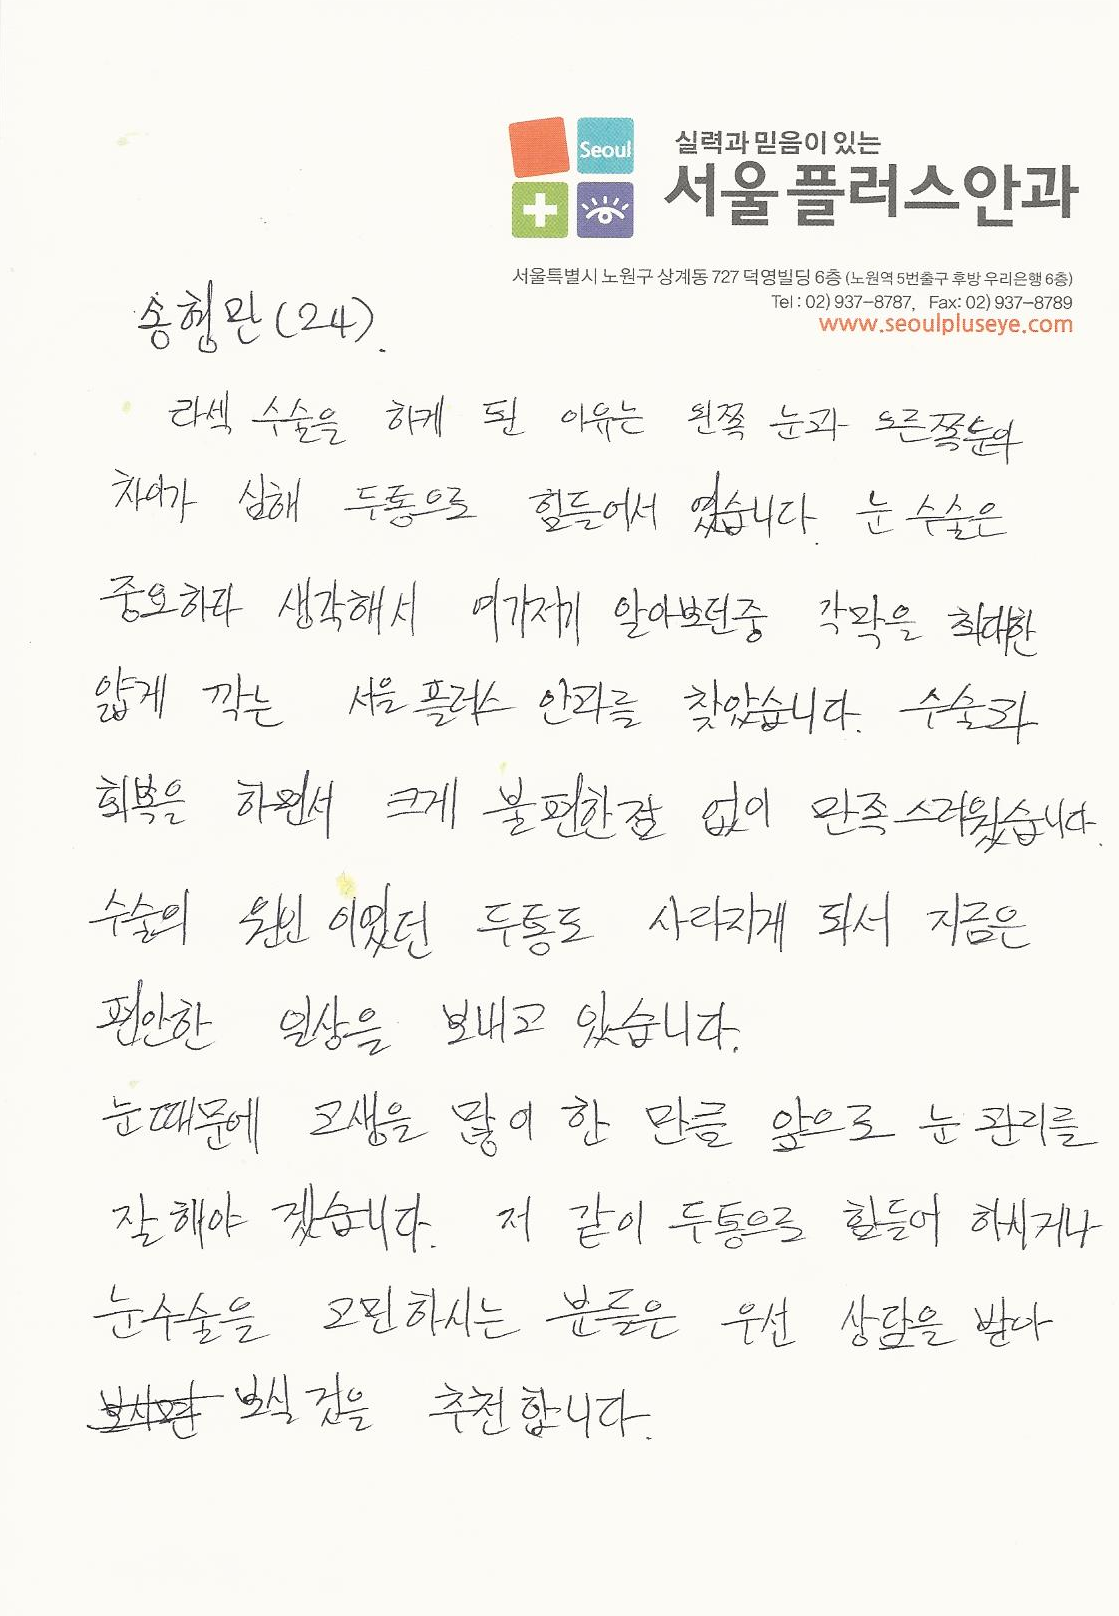 Seoul
실력과 믿음이 있는
서울플러스안과
서울특별시 노원구 상계동 727 덕영빌딩 6층 (노원역 5번출구 후방 우리은행 6층)
Tel : 02) 937-8787, Fax: 02) 937-8789
www.seoulpluseye.com
송형민 (24).
라섹 수술을 하게 된 이유는 왼쪽 눈과 오른쪽눈의
차이가 심해 두통으로 힘들어서 였습니다. 눈 수술은
중요하다 생각해서 여기저기 알아보던중 각막을 최대한
얇게 깍는 서울플러스 안과를 찾았습니다. 수술과
회복을 하면서 크게 불편한점 없이 만족스러웠습니다.
수술의 원인 이었던 두통도 사라지게 되서 지금은
편안한 일상을 보내고 있습니다.
눈때문에 고생을 많이 한 만큼 앞으로 눈 관리를
잘해야 겠습니다. 저 같이 두통으로 힘들어 하시거나
눈수술을 고민하시는 분들은 우선 상담을 받아
보시면 보실 것을 추천합니다.